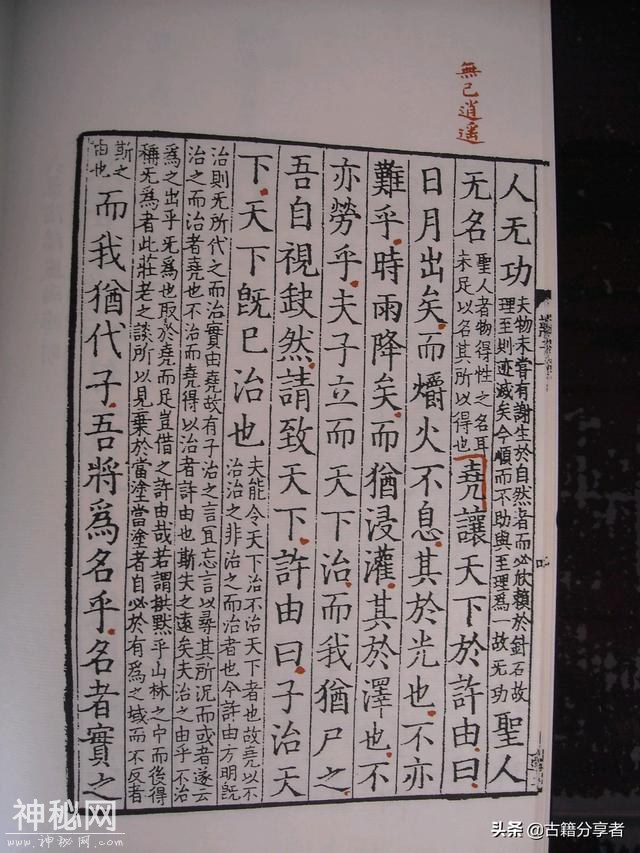 無己逍遙
人无功
夫物未嘗有謝生於自然者而必欣賴於針石故
理至則迹滅矣今順而不助與至理爲一故无功
聖人
无名
聖人者物得性之名耳
未足以名其所以得也
堯讓天下於許由曰
日月出矣而爝火不息其於光也不亦
難乎時雨降矣而猶浸灌其於澤也不
亦勞乎夫子立而天下治而我猶尸之
吾自視缺然請致天下許由曰子治天
下天下旣已治也
夫能令天下治不治天下者也故堯以不
治治之非治之而治者也今許由方明旣
治則无所代之而治實由堯故有子治之言宜忘言以尋其所況而或者遂云
治之而治者堯也不治而堯得以治者許由也斯失之遠矣夫治之由乎不治
爲之出乎无爲也取於堯而足豈借之許由哉若謂拱默乎山林之中而後得
稱无爲者此莊老之談所以見棄於當塗當塗者自必於有爲之域而不反者
斯之
由也
而我猶代子吾將爲名乎名者實之
神秘网
www.神秘网.com
头条 @古籍分享者